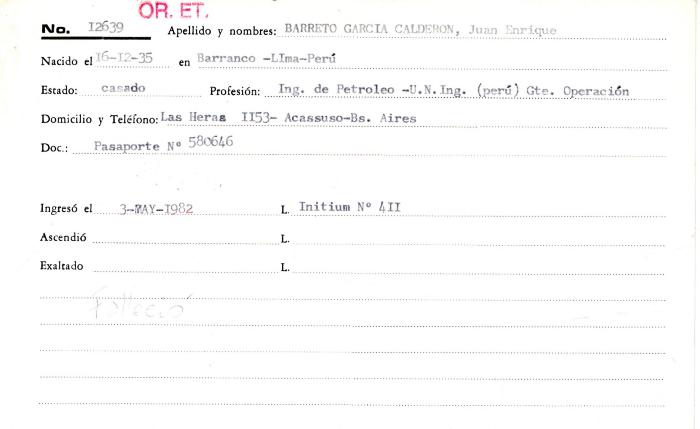 OR. ET.
No. I2639 Apellido y nombres: BARRETO GARCIA CALDERON, Juan Enrique
Nacido el 16-I2-35 en Barranco -LIma-Perú
Estado: casado Profesión: Ing. de Petroleo -U.N.Ing. (perú) Gte. Operación
Domicilio y Teléfono: Las Heras II53- Acassuso-Bs. Aires
Doc.: Pasaporte Nº 580646
Ingresó el 3-MAY-I982 L. Initium Nº 4II
Ascendió L.
Exaltado L.
Falleció